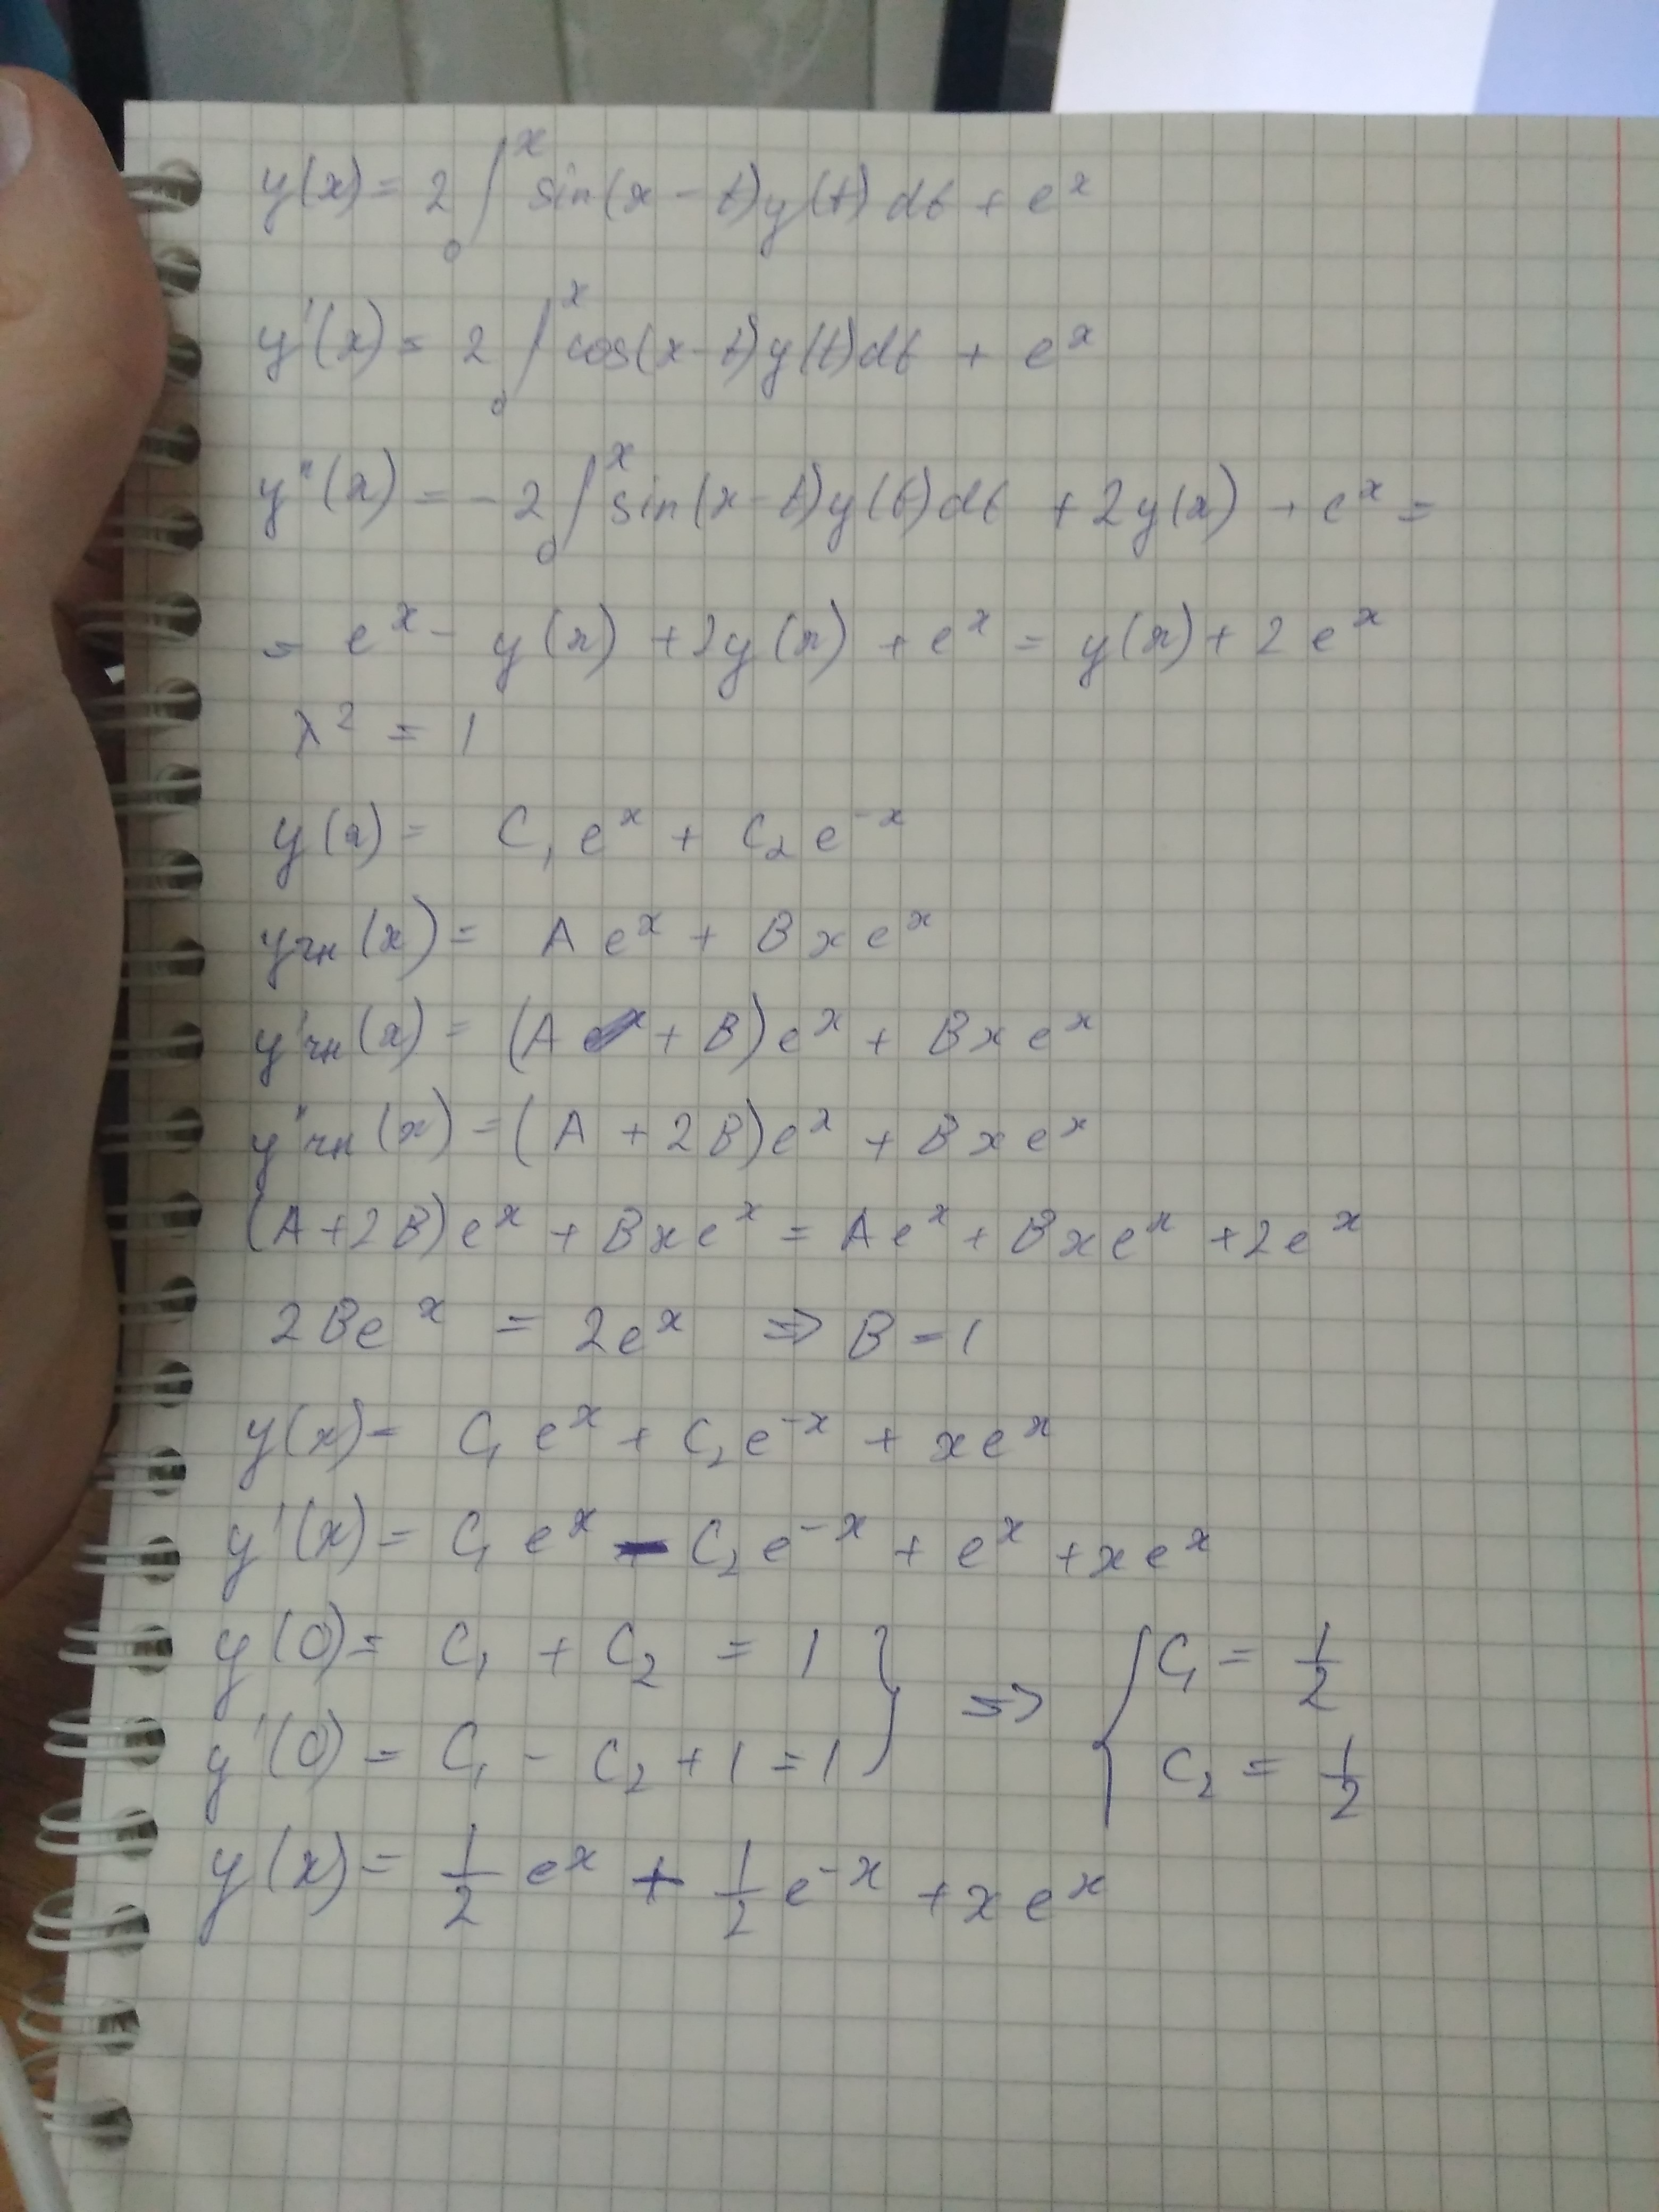 y(x) = 2 ∫₀ˣ sin(x - t)y(t) dt + eˣ
y'(x) = 2 ∫₀ˣ cos(x-t)y(t)dt + eˣ
y''(x) = -2 ∫₀ˣ sin(x-t)y(t)dt + 2y(x) + eˣ =
= eˣ - y(x) + 2y(x) + eˣ = y(x) + 2eˣ
λ² = 1
y(x) = C₁eˣ + C₂e⁻ˣ
yчн(x) = Aeˣ + Bxeˣ
y'чн(x) = (A + B)eˣ + Bxeˣ
y''чн(x) = (A + 2B)eˣ + Bxeˣ
(A+2B)eˣ + Bxeˣ = Aeˣ + Bxeˣ + 2eˣ
2Beˣ = 2eˣ ⇒ B = 1
y(x) = C₁eˣ + C₂e⁻ˣ + xeˣ
y'(x) = C₁eˣ - C₂e⁻ˣ + eˣ + xeˣ
y(0) = C₁ + C₂ = 1 } ⇒ { C₁ = 1/2
y'(0) = C₁ - C₂ + 1 = 1 C₂ = 1/2
y(x) = 1/2 eˣ + 1/2 e⁻ˣ + xeˣ